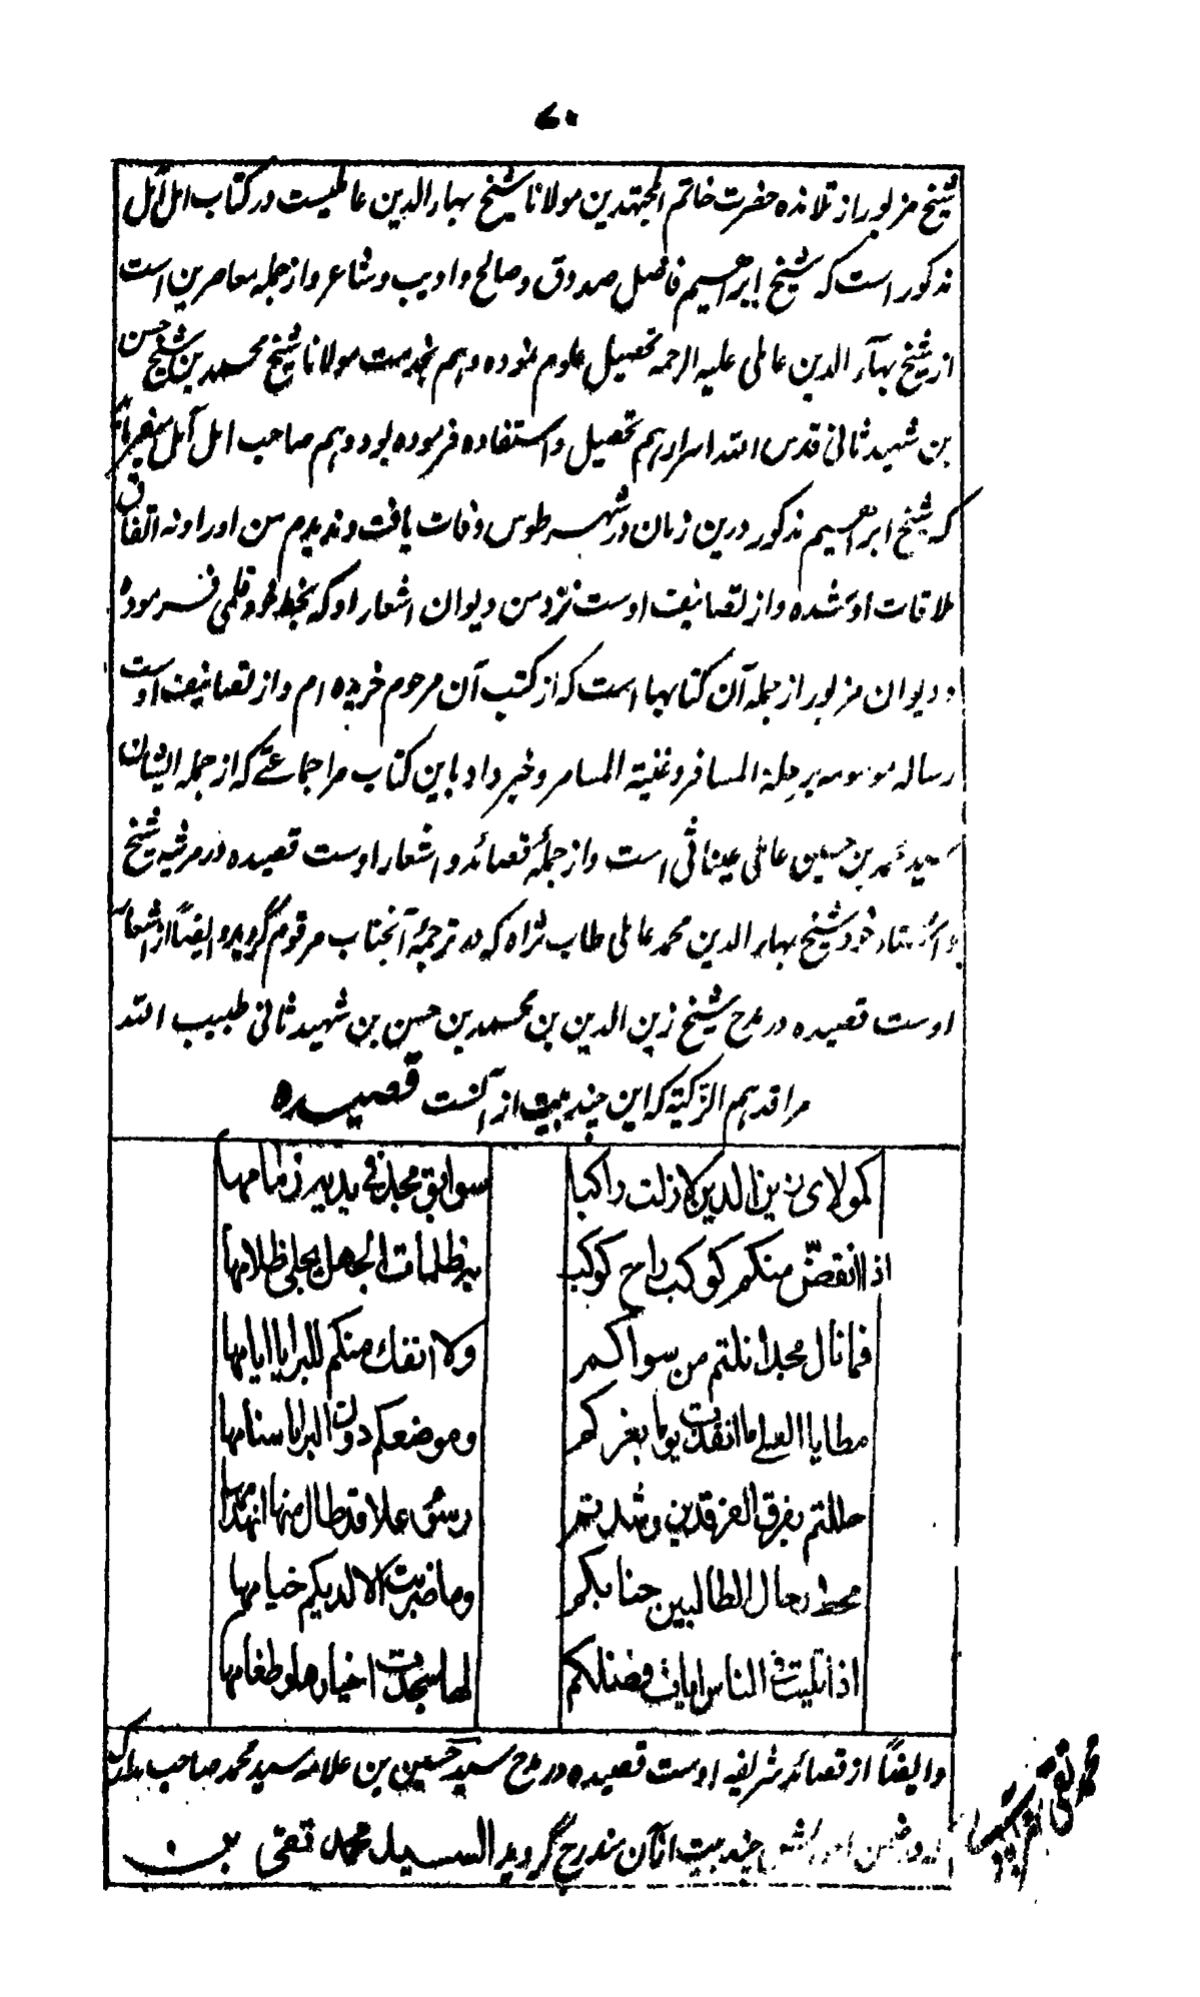 ٧٠
شیخ مزبور از تلامذه حضرت خاتم المجتهدین مولانا شیخ بهار الدین عاملیست در کتاب امل آمل
مذکور است که شیخ ابراهیم فاضل صدوق و صالح و ادیب و شاعر و از جمله معاصرین است
از شیخ بهآر الدین عاملی علیه الرحمه تحصیل علوم نموده و هم بخدمت مولانا شیخ محمد بن شیخ حسن
بن شهید ثانی قدس الله اسرارهم تحصیل و استفاده فرموده بود و هم صاحب امل آمل میفرماید
که شیخ ابراهیم مذکور درین زمان در شهر طوس وفات یافت و ندیدم من او را و نه اتفاق
ملاقات او شده و از تصانیف اوست نزد من دیوان اشعار او که بخط خود قلمی فرموده
و دیوان مزبور از جمله آن کتابها است که از کتب آن مرحوم خریده ام و از تصانیف اوست
رساله موسومه برحلة المسافر و غنیة المسامر و خبر داد باین کتاب مرا جماعتے که از جمله ایشان
سید محمد بن حسین عاملی عیناثی است و از جملهٔ قصائد و اشعار اوست قصیده در مرثیه شیخ
و استاد خود شیخ بهار الدین محمد عاملی طاب ثراه که در ترجمهٔ آنجناب مرقوم گردید و ایضاً از اشعار
اوست قصیده در مدح شیخ زین الدین بن محمد بن حسن بن شهید ثانی طیب الله
مراقدهم الزکیة که این چند بیت از آنست قصیده
کمولای زین الدین لازلت راکبا سوابق مجد فی یدیه زمامها
اذا انقضّ منکم کوکب راح کوکب به ظلمات الجهل یجلی ظلامها
فما نال مجدا نلتم من سواکم ولا انفك منکم للبرایا امامها
مطایا العلی ما انقدت یوما بغیرکم وموضعکم دون البرایا سنامها
حللتم بفرق الفرقدین وشدتم رسوم علا قد طال منها انهدامها
محط رحال الطالبین جنابکم وما ضربت الا لدیکم خیامها
اذا تلیت فی الناس ایات فضلکم لها سجدت اخیارها وطغامها
وایضاً از قصائد شریفه اوست قصیده در مدح سید حسین بن علامه سید محمد صاحب مدارک
که در ضمن چند بیت از آن مندرج گردید السید محمد تقی بن
محمد تقی